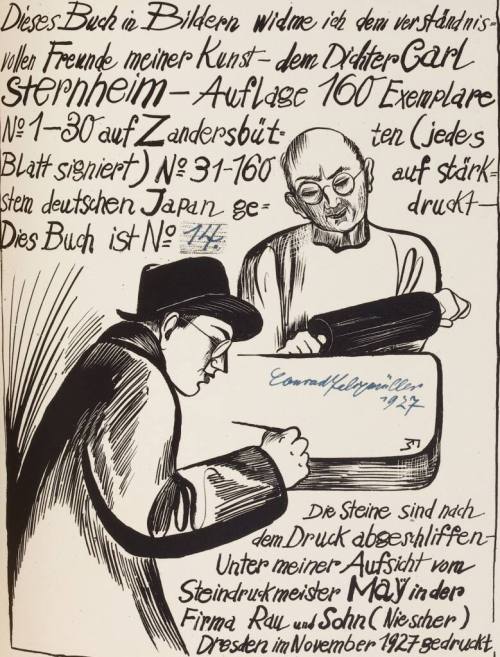 Dieses Buch in Bildern widme ich dem verständnis-
vollen Freunde meiner Kunst – dem Dichter Carl
Sternheim – Auflage 160 Exemplare
Nº 1-30 auf Zandersbüt= ten (jedes
Blatt signiert) Nº 31-160 auf stärk=
stem deutschen Japan ge= druckt –
Dies Buch ist Nº 14.
Conrad Felixmüller
1927
Die Steine sind nach
dem Druck abgeschliffen –
Unter meiner Aufsicht vom
Steindruckmeister Maÿ in der
Firma Rau und Sohn (Niescher)
Dresden im November 1927 gedruckt